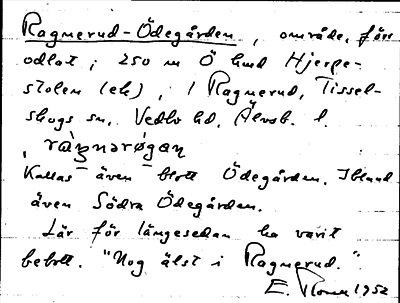 Ragnerud-Ödegården, område, förr
odlat i 250 m Ö hmd Hjerpe-
stolen (ek), i Ragnerud, Tissel-
skogs sn, Vedbo hd, Älvsb. l.
Kallas även blott Ödegården. Ibland
även Södra Ödegården.
Lär för längesedan ha varit
bebott. "Nog älst i Ragnerud."
E. 1952